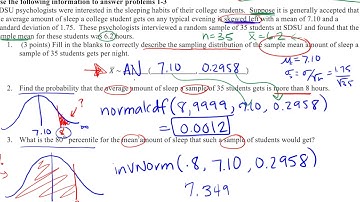 se the following information to answer problems 1-3
DSU psychologists were interested in the sleeping habits of their college students. Suppose it is generally accepted
e average amount of sleep a college student gets on any typical evening is skewed left with a mean of 7.10 and a
andard deviation of 1.75. These psychologists interviewed a random sample of 35 students at SDSU and found that the
mple mean for these students was 6.2 hours.
n=35 x̄=6.2
1. (3 points) Fill in the blanks to correctly describe the sampling distribution of the sample mean amount of sleep a
sample of 35 students gets per night.
μ=7.10
X̄ ~ AN ( 7.10 , 0.2958 )
σ/√n = 1.75/√35
2. Find the probability that the average amount of sleep a sample of 35 students gets is more than 8 hours.
normalcdf(8,9999,7.10,0.2958)
= 0.0012
7.10 8 ∞
3. What is the 80th percentile for the mean amount of sleep that such a sample of students would get?
invNorm(.8, 7.10, 0.2958)
7.349